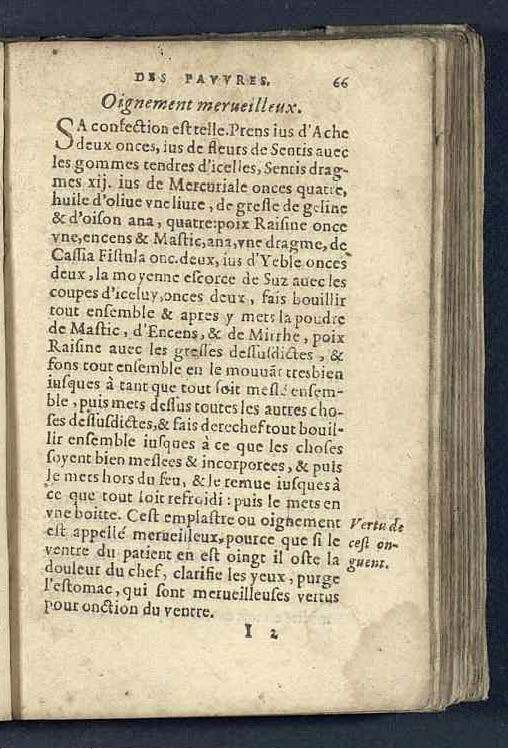 DES PAVVRES. 66
Oignement merueilleux.
SA confection est telle. Prens ius d'Ache
deux onces, ius de fleurs de Sentis auec
les gommes tendres d'icelles, Sentis drag-
mes xij. ius de Mercuriale onces quatre,
huile d'oliue vne liure, de gresse de geline
& d'oison ana, quatre: poix Raisine once
vne, encens & Mastic, ana, vne dragme, de
Cassia Fistula onc. deux, ius d'Yeble onces
deux, la moyenne escorce de Suz auec les
coupes d'iceluy, onces deux, fais bouillir
tout ensemble & apres y mets la poudre
de Mastic, d'Encens, & de Mirrhe, poix
Raisine auec les gresses dessusdictes, &
fons tout ensemble en le mouuāt tresbien
iusques à tant que tout soit meslé ensem-
ble, puis mets dessus toutes les autres cho-
ses dessusdictes, & fais derechef tout bouil-
lir ensemble iusques à ce que les choses
soyent bien meslees & incorporees, & puis
le mets hors du feu, & le remue iusques à
ce que tout soit refroidi: puis le mets en
vne boitte. Cest emplastre ou oignement
est appellé merueilleux, pource que si le
ventre du patient en est oingt il oste la
douleur du chef, clarifie les yeux, purge
l'estomac, qui sont merueilleuses vertus
pour onction du ventre.
Vertu de
cest on-
guent.
I 2